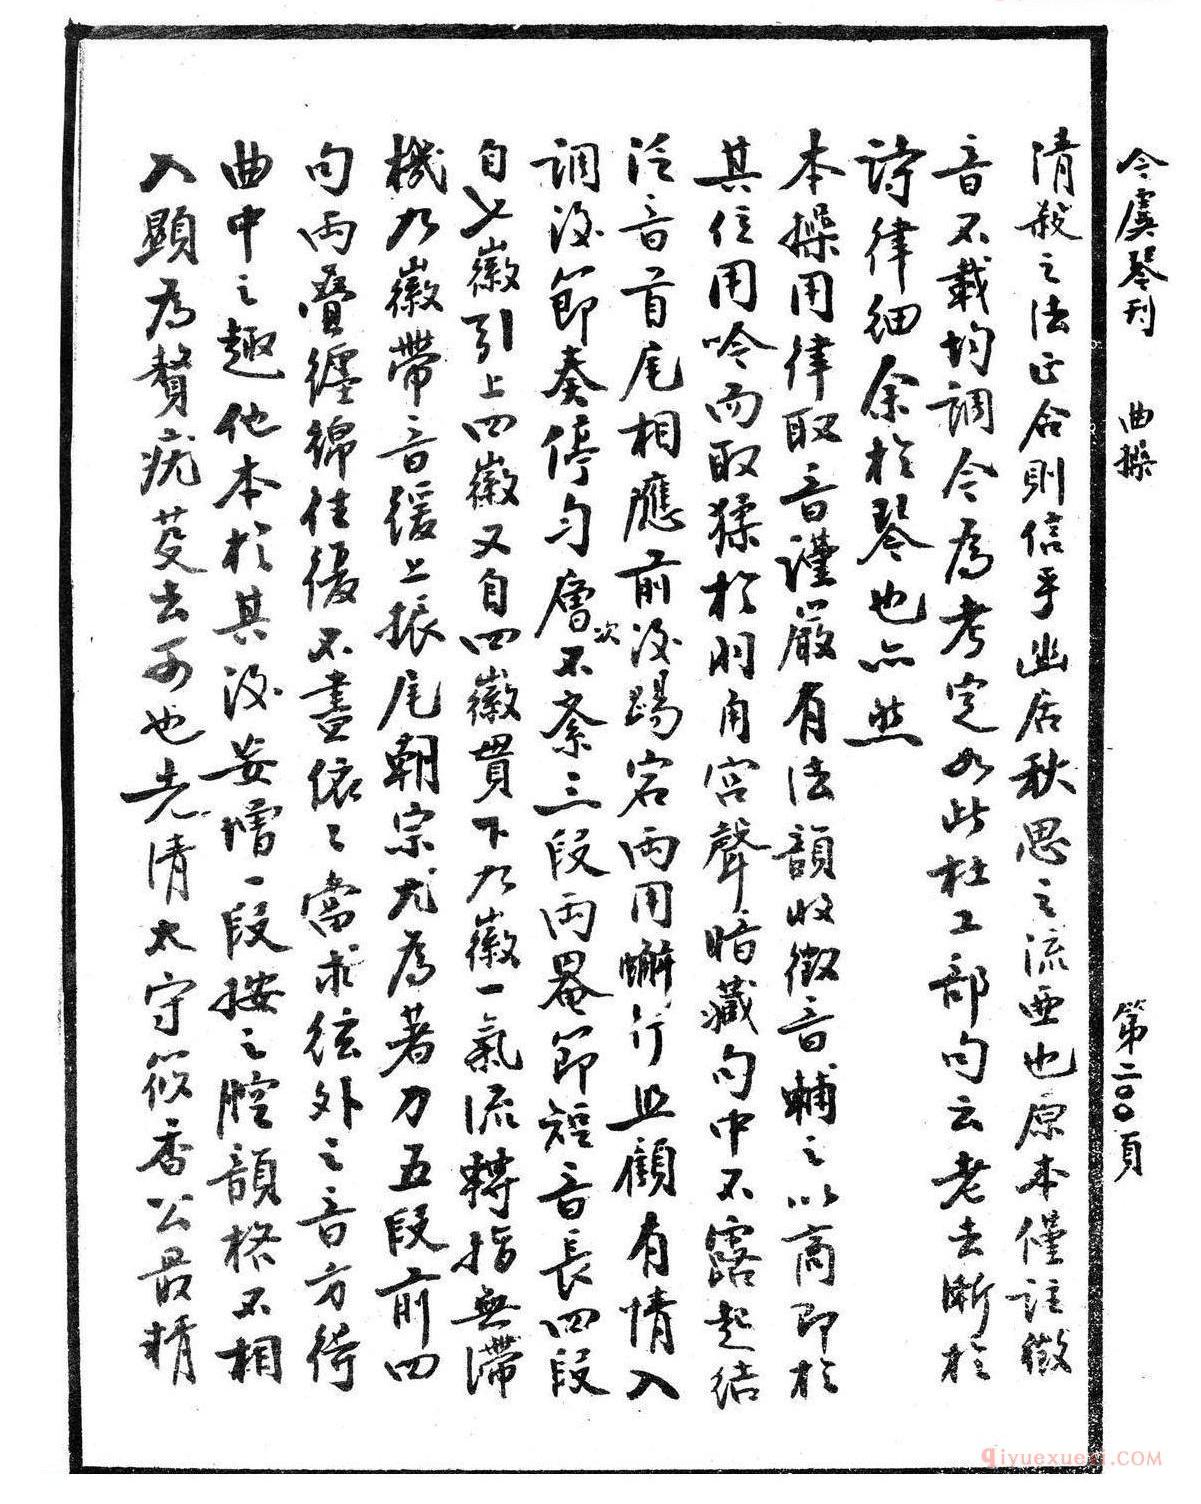 今虞琴刊　曲操　第二〇〇頁
清殺之法正合則信乎幽居秋思之流亞也原本僅註徵
音不載均調今為考定如此杜工部句云老去漸於
詩律細余於琴也亦然
本操用律取音謹嚴有法韻收徵音輔之以商即於
其位用吟而取猱於羽角宮聲暗藏句中不露起結
泛音首尾相應前後踢宕兩用蠏行且顧有情入
調後節奏停勻層次不紊三段兩罨節短音長四段
自七徽引上四徽又自四徽貫下九徽一氣流轉指無滯
機九徽帶音緩上振尾朝宗尤為著力五段前四
句兩疊纏綿往復不盡依々當求絃外之音方得
曲中之趣他本於其後妄增一段按之腔韻格不相
入顯為贅疣芟去可也先清太守筱香公最精
qiyuexuexi.COM